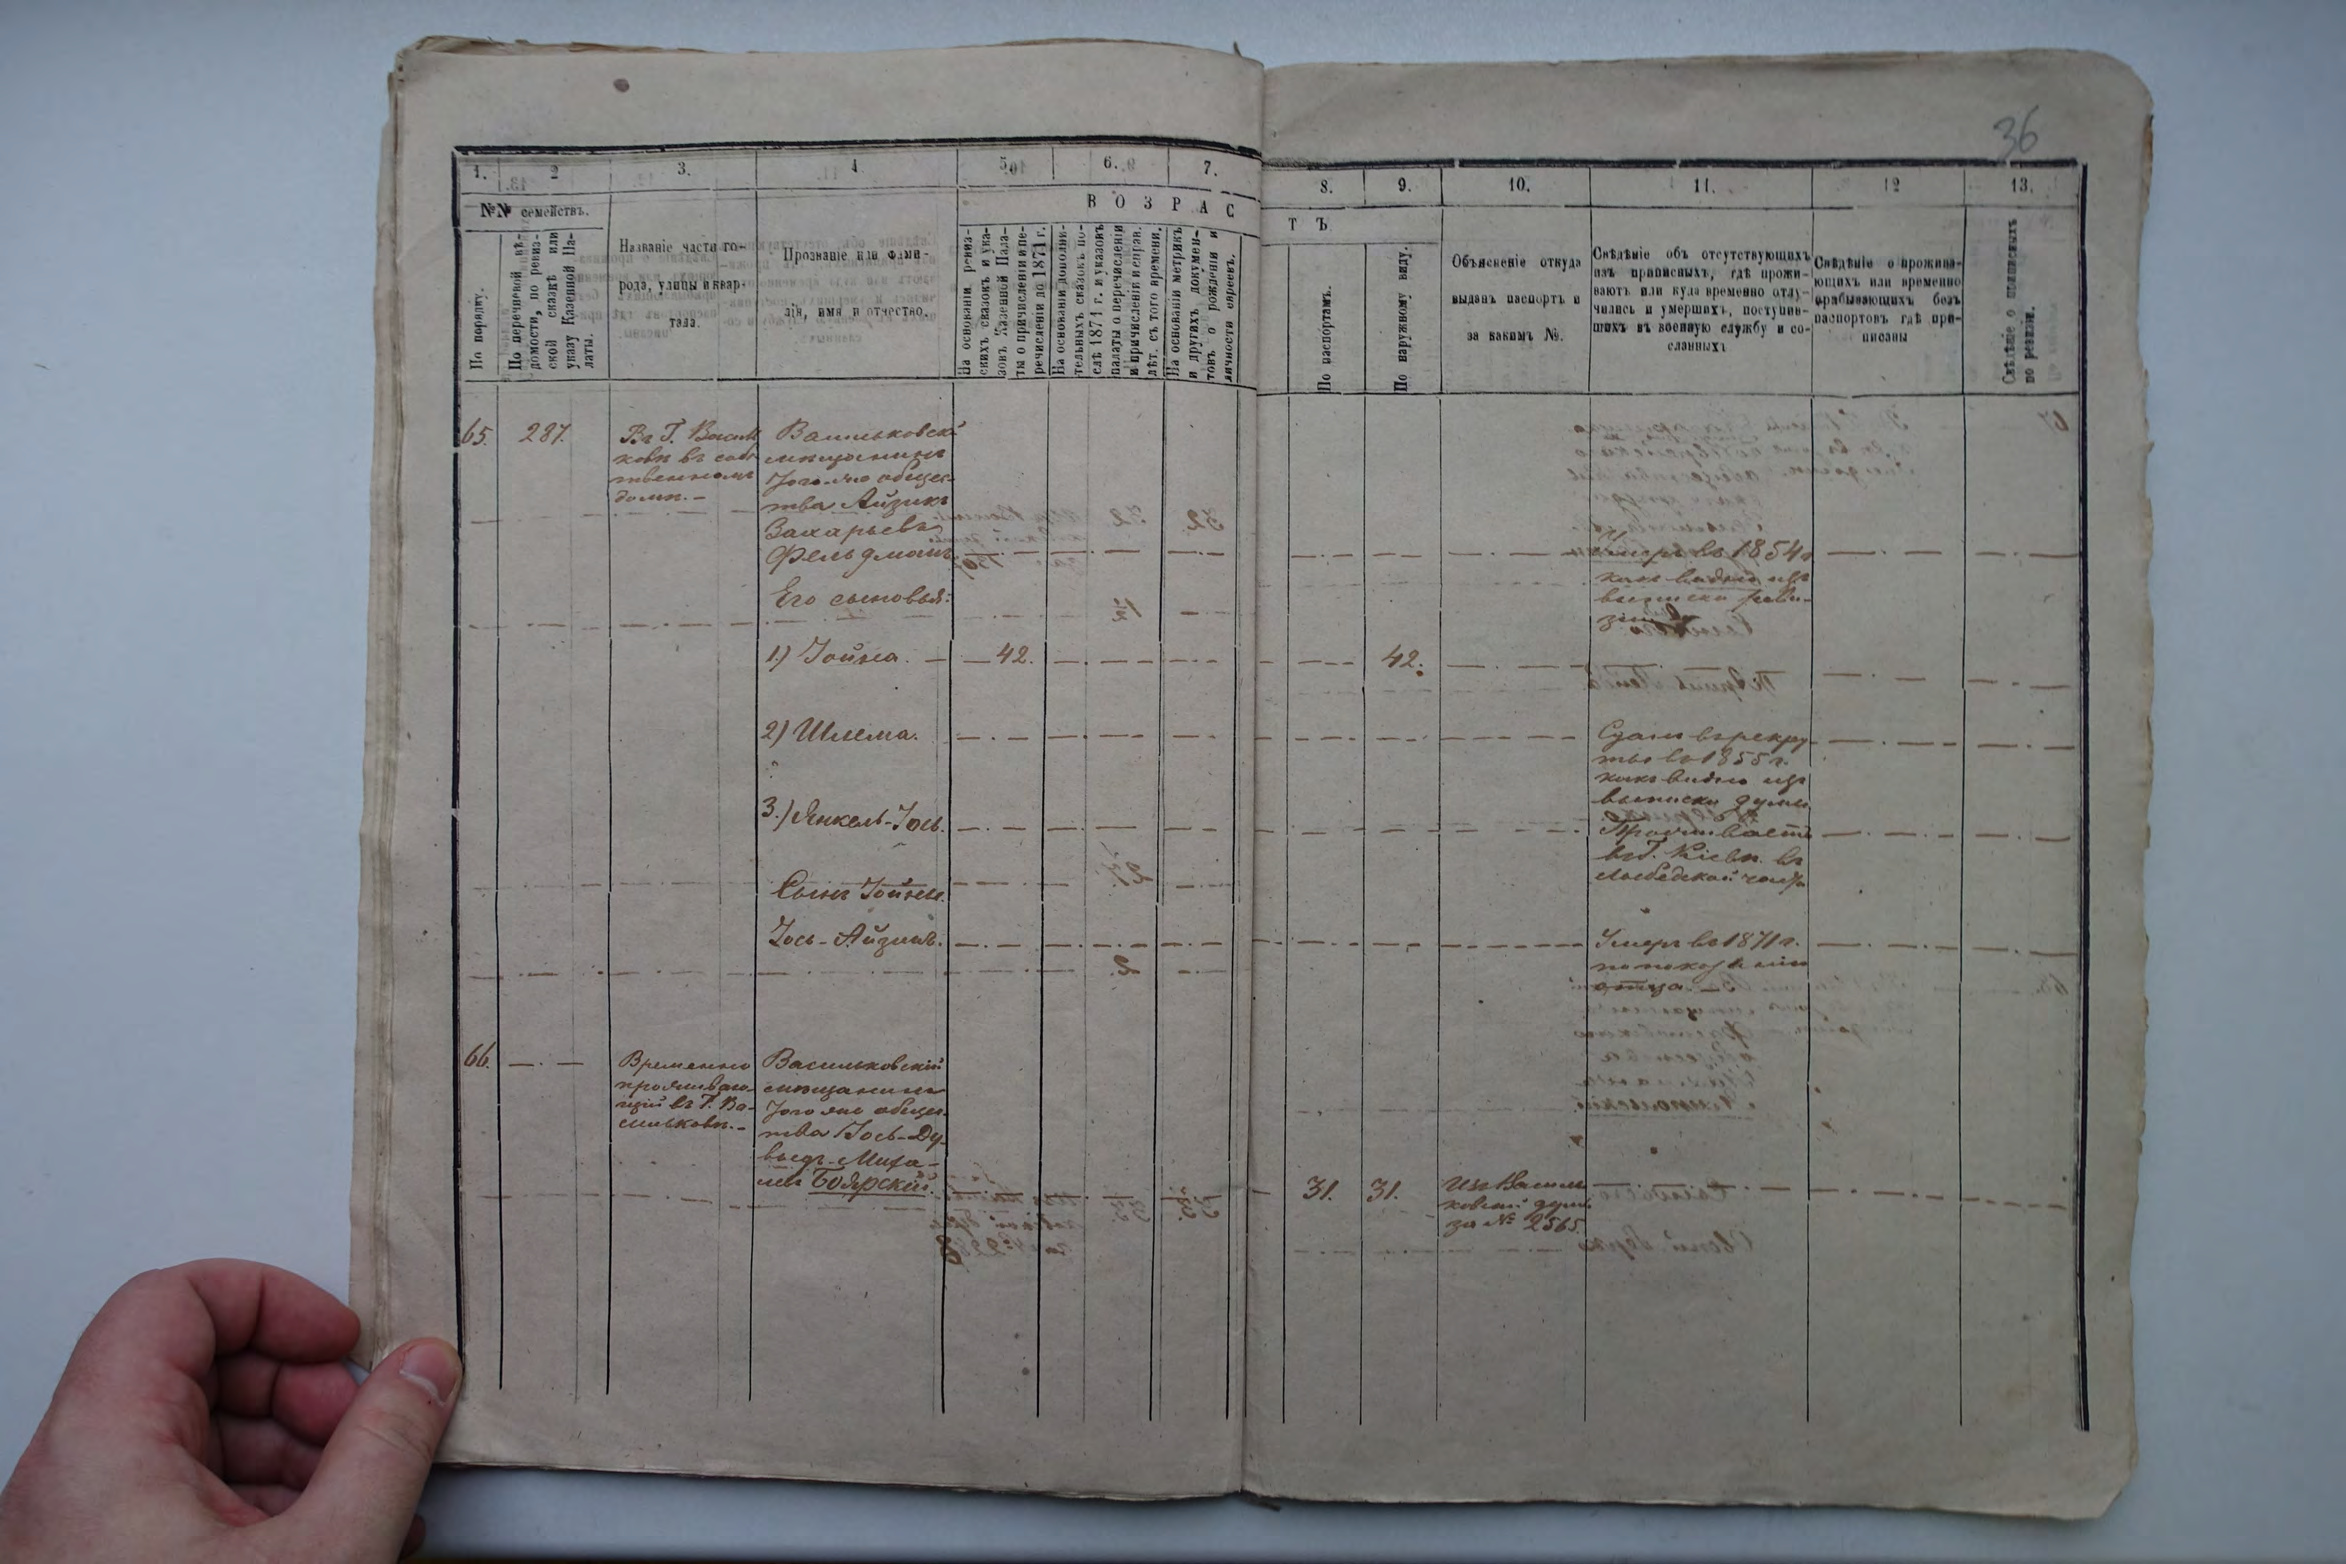 36
1.
2
3.
4
5.
6.
7.
8.
9.
10.
11.
12
13.
№№ семействъ.
В О З Р А С
Т Ъ
По порядку.
По перечневой вѣ-
домости, по ревиз-
ской сказкѣ или
указу Казенной Па-
латы.
Названіе части го-
рода, улицы и квар-
тала.
Прозваніе или фами-
лія, имя и отчество.
На основаніи ревиз-
скихъ сказокъ и ука-
зовъ Казенной Пала-
ты о причисленіи и пе-
речисленіи до 1871 г.
На основаніи дополни-
тельныхъ сказокъ по-
слѣ 1871 г. и указокъ
палаты о перечисленіи
и причисленіи и справ.
лѣт. съ того времени.
На основаніи метрикъ
и другихъ докумен-
товъ о рожденіи и
личности евреевъ.
По паспортамъ.
По наружному виду.
Объясненіе откуда
выданъ паспортъ и
за какимъ №.
Свѣдѣніе объ отсутствующихъ
изъ приписныхъ, гдѣ прожи-
ваютъ или куда временно отлу-
чились и умершихъ, поступив-
шихъ въ военную службу и со-
сланныхъ
Свѣдѣніе о прожива-
ющихъ или временно
прабывающихъ безъ
паспортовъ гдѣ при-
писаны
по ревизіи.
65.
287.
Въ Г. Василь
ковѣ въ собс
твенномъ
домѣ. –
Васильковскій
мѣщанинъ
Того-же общес-
тва Айзикъ
Захарьевъ
Фельдманъ
Умеръ въ 1854 г
какъ видно изъ
выписки реви-
Его сыновья:
1.) Іойна. – 42. 42.
2) Шлема.
Сданъ въ рекру
ты въ 1855 г.
какъ видно изъ
выписки думы
3.) Янкель-Іось.
Проживаетъ
въ Г. Кіевѣ въ
Лыбедской части
Сынъ Іойны.
Іось-Айзикъ.
Умеръ въ 1871 г.
по показанію
отца. –
66.
Временно
проживаю-
щій въ Г. Ва-
сильковѣ. –
Васильковскій
мѣщанинъ
Того же общес
тва Іось-Ду-
Боярскій.
31. 31.
Изъ Василь
ковской думы
за № 2565.